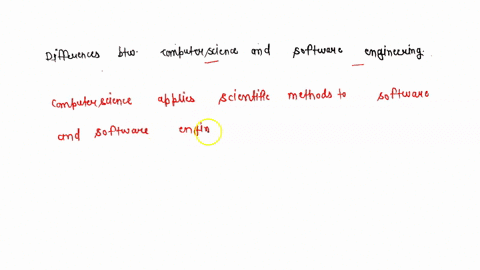 Differences btw. computer science and software engineering.
computer science applies scientific methods to software
and software engin